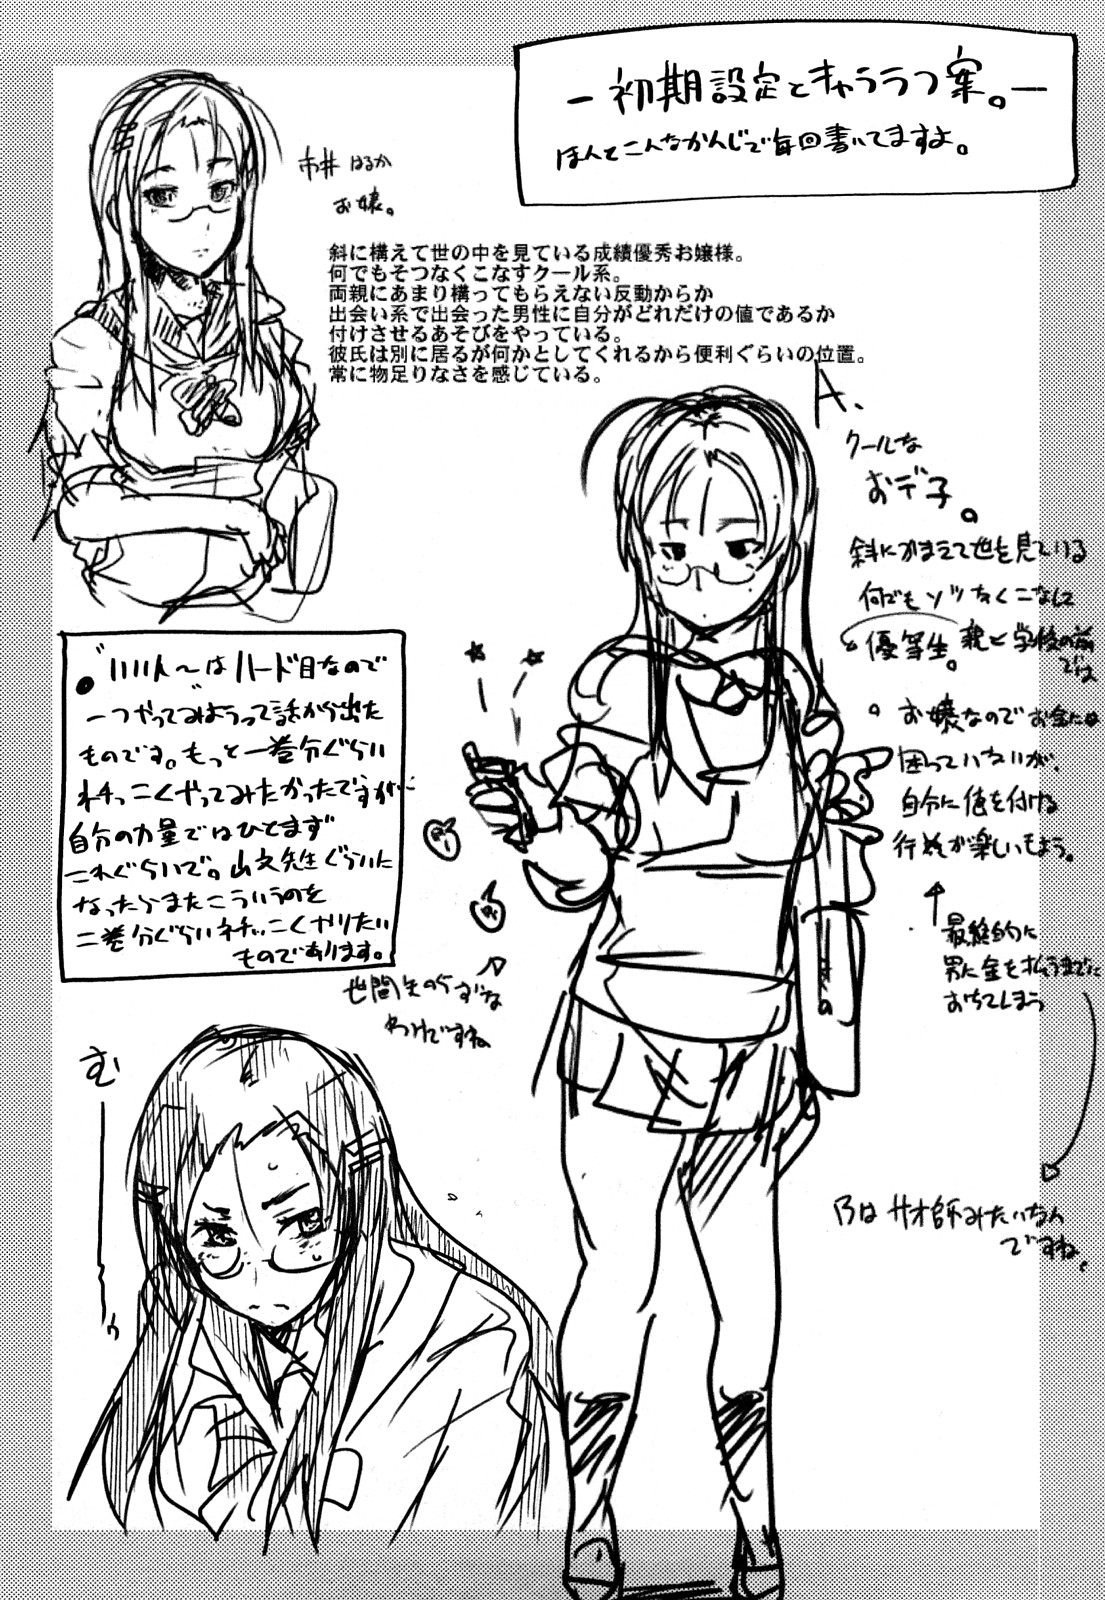 -初期設定とキャララフ案。-
ほんとこんなかんじで毎回書いてますよ。
市井 はるか
お嬢。
斜に構えて世の中を見ている成績優秀お嬢様。
何でもそつなくこなすクール系。
両親にあまり構ってもらえない反動からか
出会い系で出会った男性に自分がどれだけの値であるか
付けさせるあそびをやっている。
彼氏は別に居るが何かとしてくれるから便利ぐらいの位置。
常に物足りなさを感じている。
A.
クールな
おデ子。
斜にかまえて世を見ている
何でもソツなくこなして
優等生。親と学校の前
では
。お嬢なのでお金には
困っていないが、
自分に値を付ける
行為が楽しいもよう。
↑
最終的に
男に金を払うまでに
おちてしまう
Bは サオ師みたいなもん
ですね。
はハード目なので
一つやってみようって話から出た
ものです。もっと一巻分ぐらい
ネチっこくやってみたかったですが
自分の力量ではひとまず
これぐらいで。山文先生ぐらいに
なったらまたこういうのを
二巻分ぐらいネチっこくやりたい
ものであります。
世間知らずな
わけですね
む